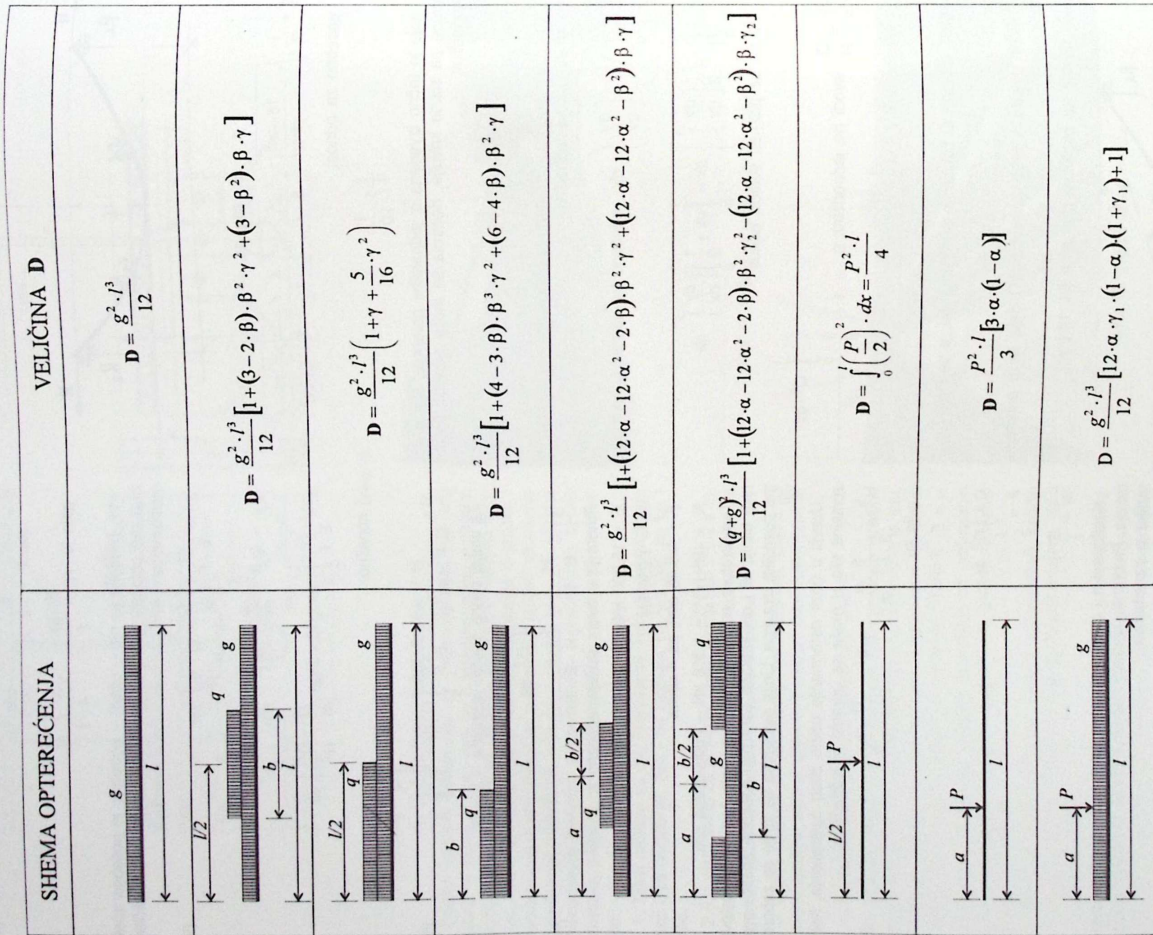 SHEMA OPTEREĆENJA
VELIČINA D
g
l
D = g²·l³/12
l/2
q
g
b
l
D = g²·l³/12 [1+(3−2·β)·β²·γ²+(3−β²)·β·γ]
l/2
q
g
l
D = g²·l³/12 (1+γ+5/16·γ²)
b
q
g
l
D = g²·l³/12 [1+(4−3·β)·β³·γ²+(6−4·β)·β²·γ]
a
b/2
q
g
l
D = g²·l³/12 [1+(12·α−12·α²−2·β)·β²·γ²+(12·α−12·α²−β²)·β·γ]
a
b/2
g
q
b
l
D = (q+g)²·l³/12 [1+(12·α−12·α²−2·β)·β²·γ₂²−(12·α−12·α²−β²)·β·γ₂]
l/2
P
l
D = ∫₀ˡ(P/2)²·dx = P²·l/4
a
P
l
D = P²·l/3 [3·α·(1−α)]
a
P
g
l
D = g²·l³/12 [12·α·γ₁·(1−α)·(1+γ₁)+1]